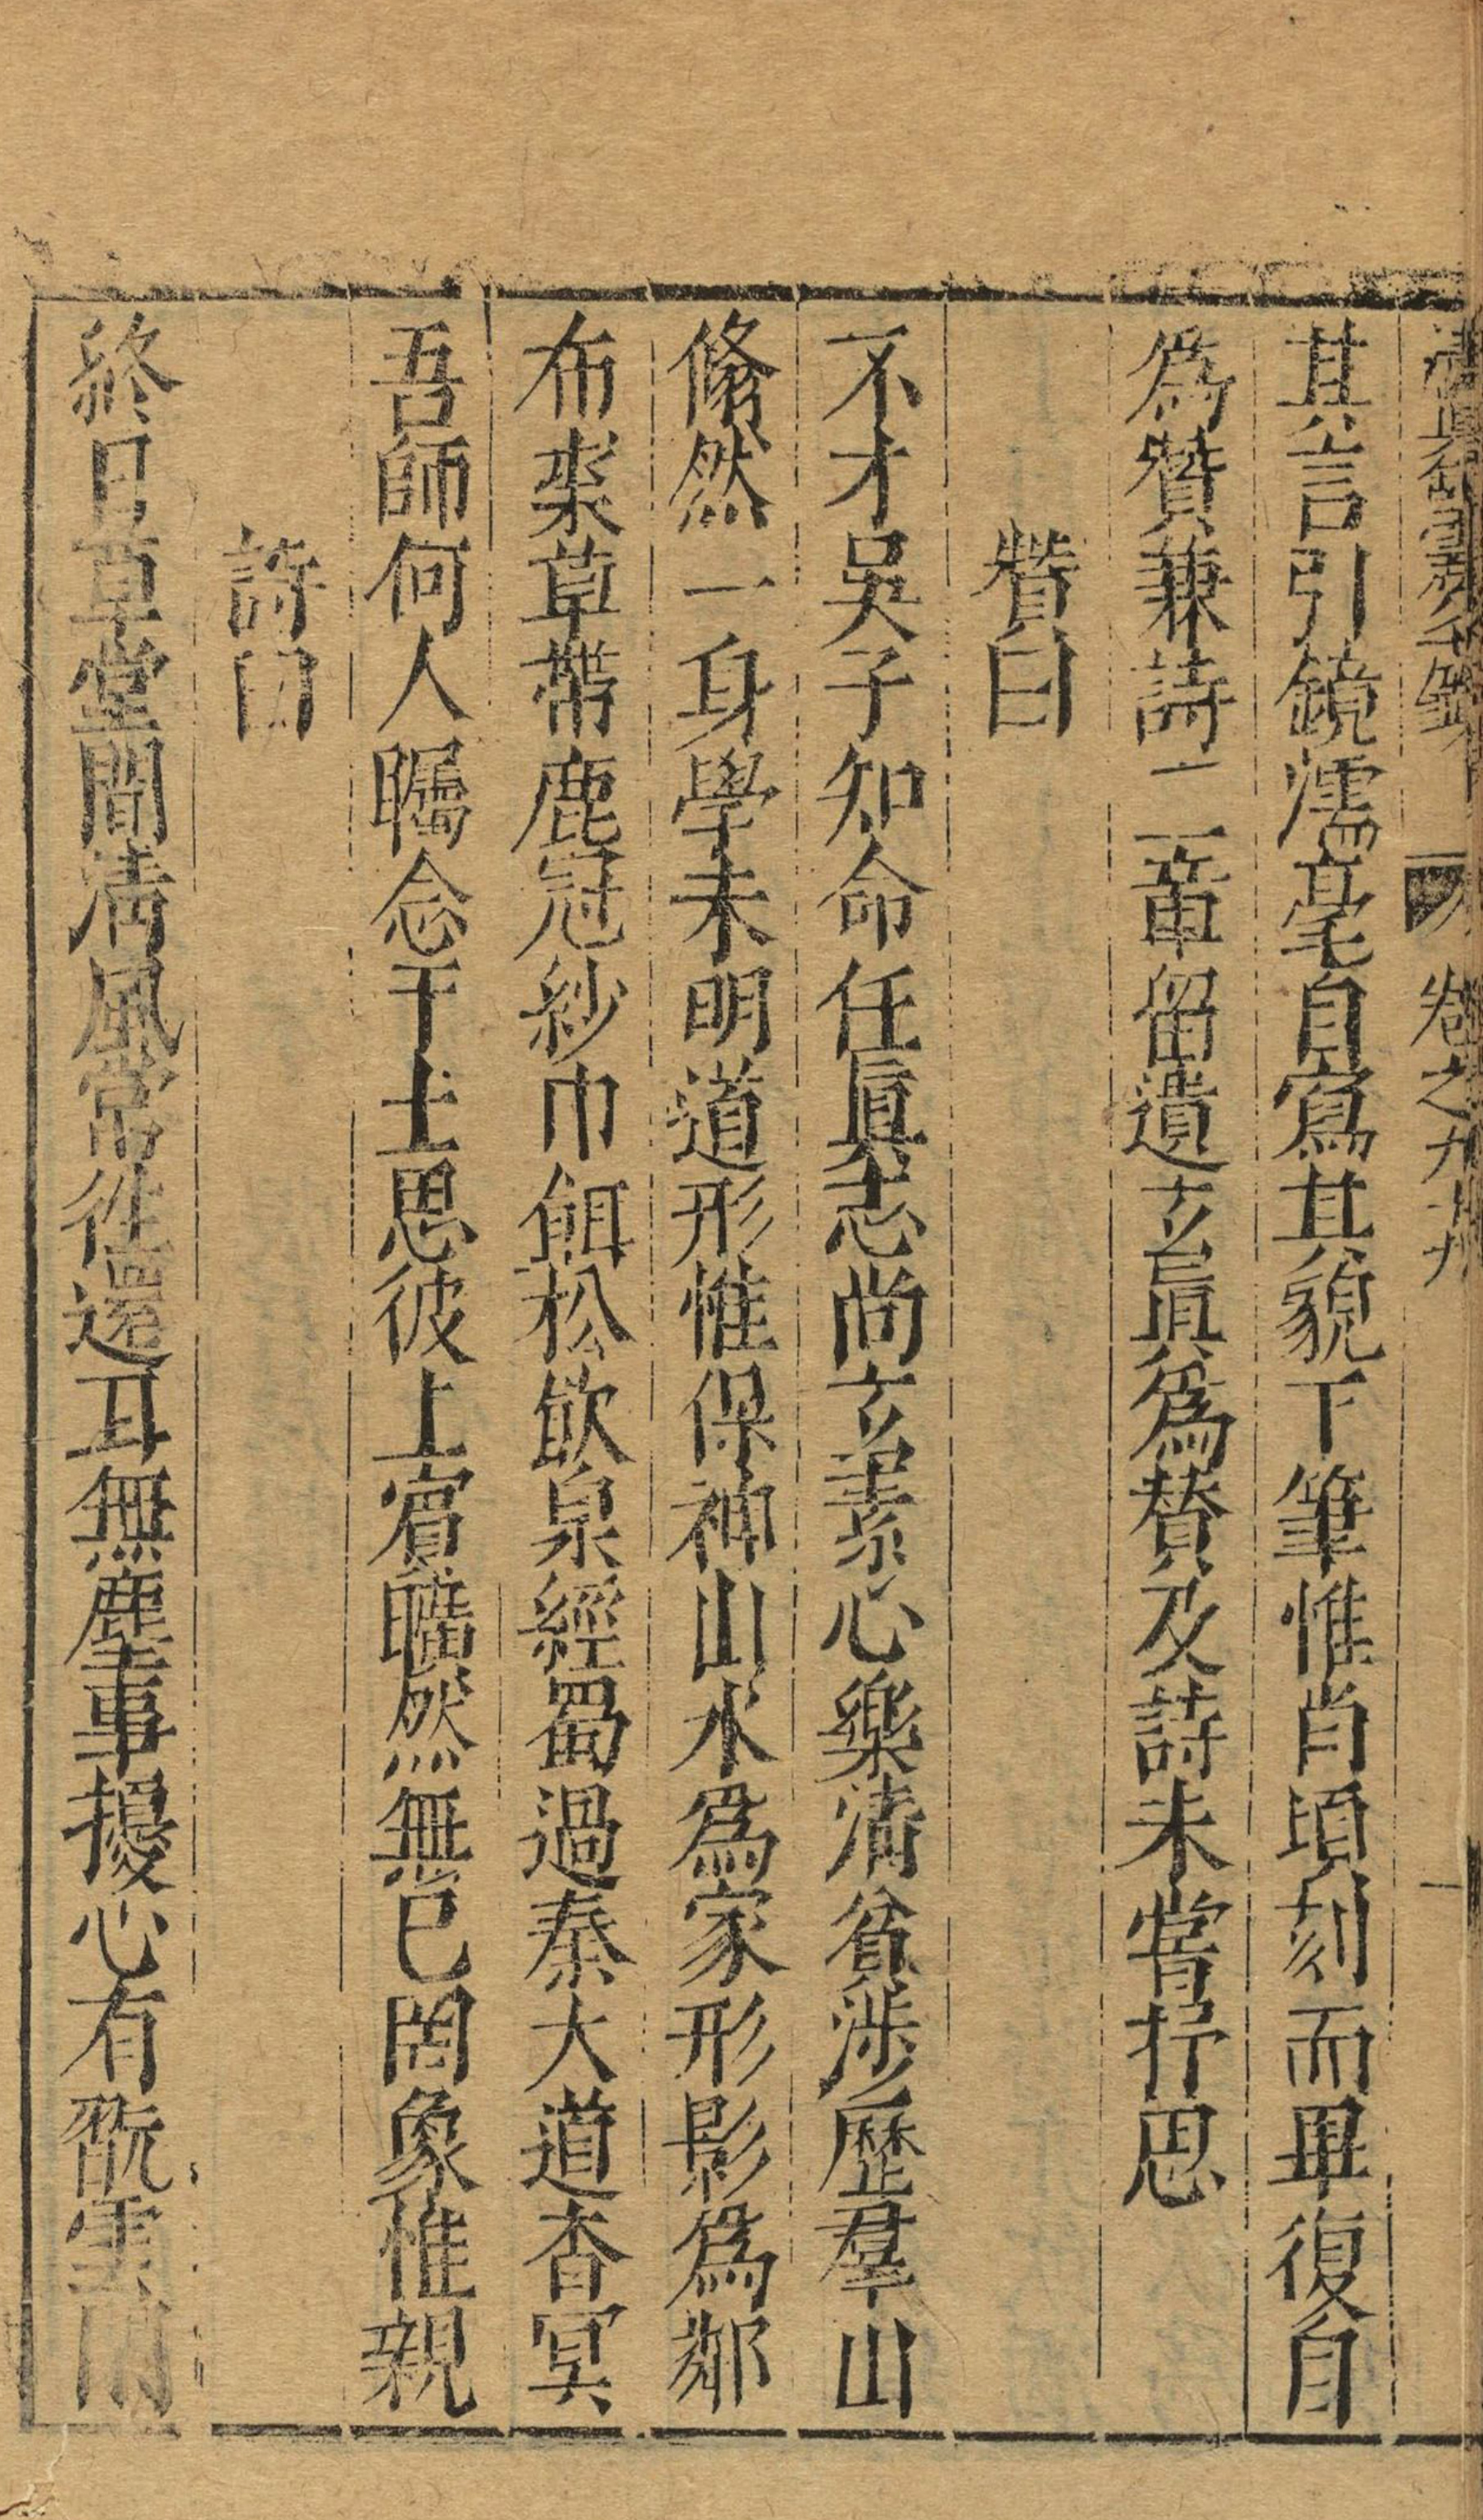 卷之九十九 一
其言引鏡濡毫自寫其貌下筆惟肖頃刻而畢復自
為贊兼詩二章留遺玄眞為贊及詩未嘗抒思
贊曰
不才吳子知命任眞志尚玄素心樂清貧涉歷羣山
翛然一身學未明道形惟保神山水為家形影為鄰
布裘草帶鹿冠紗巾餌松飲泉經蜀過秦大道杳冥
吾師何人矚念下土思彼上賓曠然無已罔象惟親
詩曰
終日草堂間清風常往還耳無塵事擾心有翫雲閒